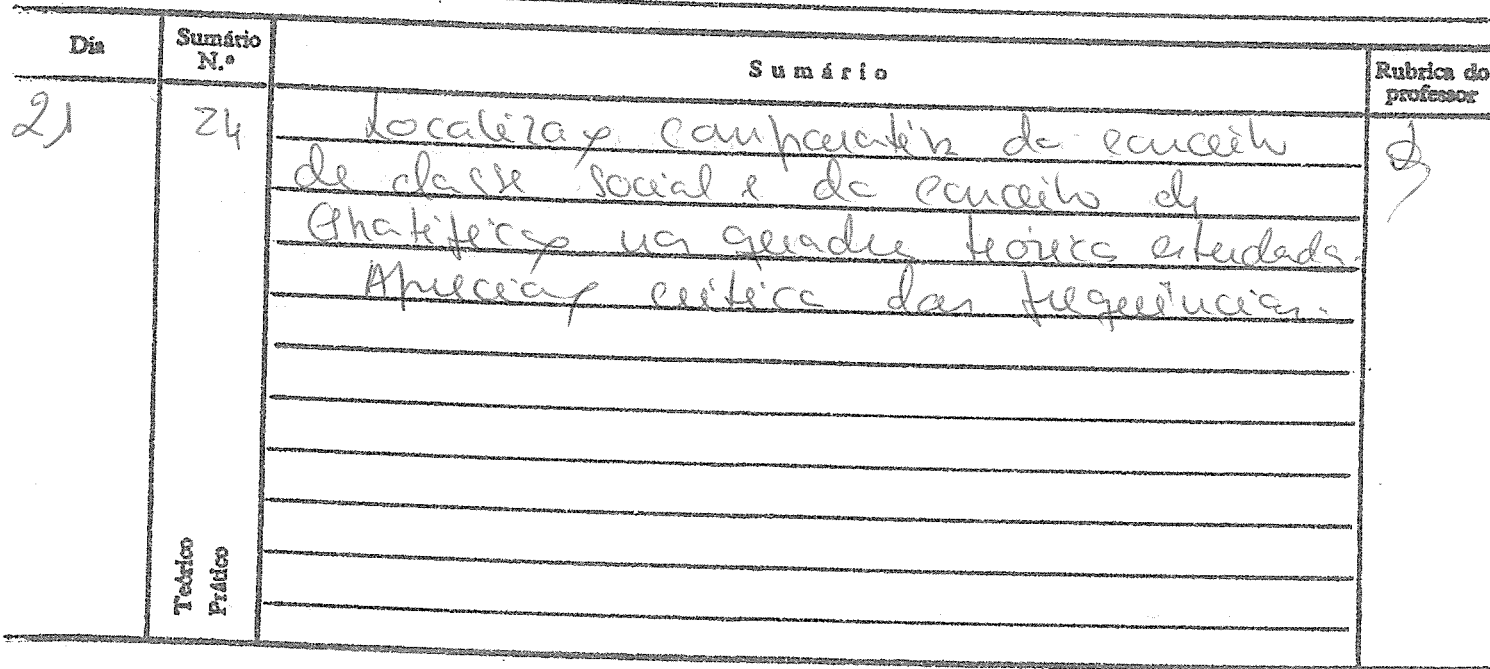 Dia
Sumário N.º
Sumário
Rubrica do professor
21
24
Localização comparativa do conceito
de classe social e do conceito de
Estratificação nos quadros teóricos estudados.
Apreciação crítica das frequências.
Teórico
Prático